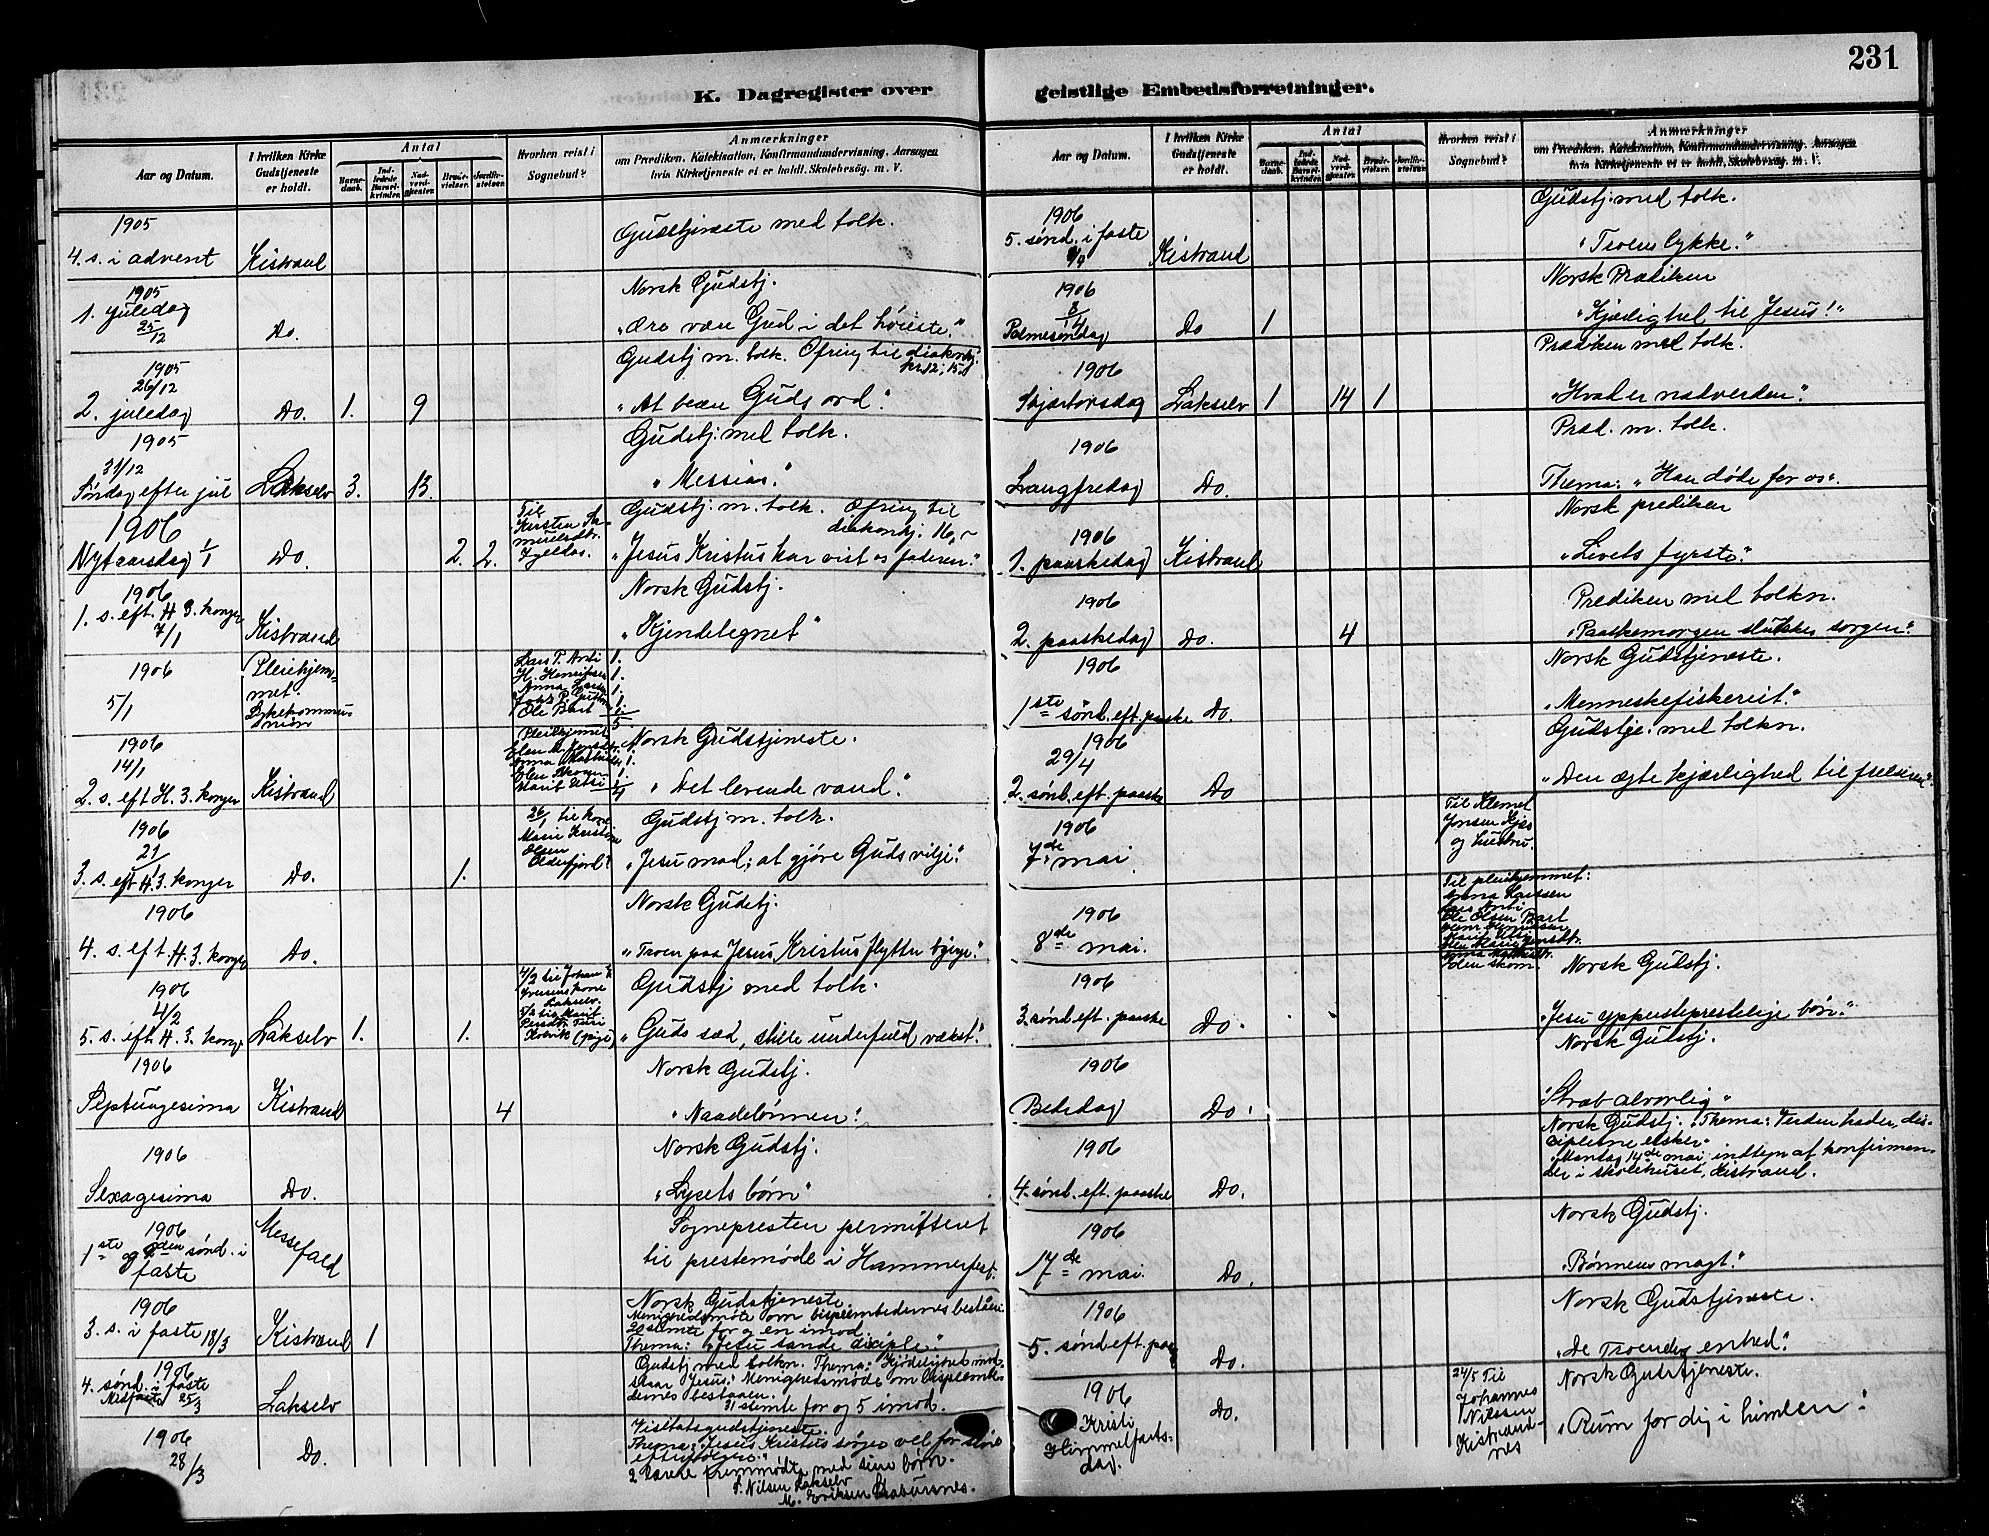 231
K. Dagregister over
geistlige Embedsforretninger.
Aar og Datum.
I hvilken Kirke
Gudstjeneste
er holdt.
Antal
Barne-
daab.
Ind-
ledede
Barsel-
kvinder.
Nad-
verd-
gjester.
Brude-
vielser.
Jordfæ-
stelser.
Hvorhen reist i
Sognebud?
Anmærkninger
om Prædiken, Katekisation, Konfirmandundervisning, Aarsagen
hvis Kirketjeneste ei er holdt, Skolebesøg. m. V.
1905
4. s. i advent Kistrand
Gudstjeneste med tolk.
1905
1. juledag
25/12 Do.
Norsk Gudstj.
"Ære være Gud i det høieste."
1905
26/12
2. juledag Do. 1. 9
Gudstj m. tolk. Ofring til diakonhj.
kr 12,15
"At bære Guds ord".
1905
31/12
Søndag efter jul Lakselv 3. 13.
Gudstj. med tolk.
"Messias".
1906
Nytaarsdag 1/1 Do. 2. 2.
Til
Kirsten
Gudstj. m. tolk. Ofring til
diakonhj. 16,-
"Jesus Kristus har vist os faderen."
1906
1. s. eft. H. 3. konger
7/1 Kistrand
Norsk Gudstj.
"Kjendetegnet"
1906
5/1
Pleiehjem-
met.
Lars P. Anti 1.
H. Henriksen 1.
Anna 1.
Ole Bart 1
5
1906
14/1
2. s. eft H. 3. konger Kistrand
Pleiehjemmet
Norsk Gudstjeneste.
"Det levende vand."
1906
21/1
3. s. eft H. 3. konger Do. 1.
26/1 til kone
Marie Kristine
Olsen
Olderfjord.
Gudstj m. tolk.
"Jesu mad; at gjøre Guds vilje."
1906
4. s. eft H. 3. konger Do.
Norsk Gudstj.
"Troen paa Jesus Kristus flytter bjerge."
1906
4/2
5. s. eft H. 3. konger Lakselv 1. 1.
4/2 til Johan
Iversens kone
Lakselv.
Gudstj med tolk.
"Guds sæd, stille underfuld vækst."
1906
Septuagesima Kistrand 4
Norsk Gudstj.
"Naadelønnen".
1906
Sexagesima Do.
Norsk Gudstj.
"Lysets børn"
1906
1ste og 2den sønd. i
faste
Messefald
Sognepresten permitteret
til prestemøde i Hammerfest.
1906
3. s. i faste 18/3 Kistrand 1
Norsk Gudstjeneste
Menighedsmøte om bispeembedernes bestaaen
20 stemte for og en imod.
Thema: "Jesu sande disciple."
1906
4. sønd. i faste
Midfaste 25/3 Lakselv
Gudstj med tolkn. Thema: Kjødelighed mod-
staar Jesus." Menighedsmøde om bispeembe-
dernes bestaaen.
31 stemte for og 5 imod.
1906
28/3 Do.
Visitatsgudstjeneste.
Thema: "Jesus Kristus sørger vel for sine
efterfølgere."
2 lærere fremmødte med sine børn.
P. Nilsen Lakselv
M. Eriksen
Aar og Datum.
I hvilken Kirke
Gudstjeneste
er holdt.
Antal
Barne-
daab.
Ind-
ledede
Barsel-
kvinder.
Nad-
verd-
gjester.
Brude-
vielser.
Jordfæ-
stelser.
Hvorhen reist i
Sognebud?
Anmærkninger
om Prædiken, Katekisation, Konfirmandundervisning, Aarsagen
hvis Kirketjeneste ei er holdt, Skolebesøg. m. V.
1906
5. sønd. i faste
Kistrand
Gudstj. med tolk.
"Troens lykke."
1906
8/4
Palmesøndag Do 1
Norsk Prædiken
"Kjærlighed til Jesus!"
1906
Skjærtorsdag Lakselv 1 14 1
Prædiken med tolk.
"Hvad er nadverden".
1906
Langfredag Do.
Præd. m. tolk.
Thema: "Han døde for os".
1906
1. paaskedag Kistrand
Norsk prediken
"Livets fyrste."
1906
2. paaskedag Do. 4
Prediken med tolkn.
"Paaskemorgen slukker sorgen".
1906
1ste sønd. eft. paaske Do.
Norsk Gudstjeneste.
"Menneskefiskeriet."
1906
29/4
2. sønd. eft. paaske Do
Gudstje. med tolkn.
"Den ægte kjærlighed til frelseren".
1906
7de mai
Til Klemet
Jonsen
og hustru.
1906
8de mai.
Til pleiehjemmet:
Anna Larsen
Lars Anti
Ole Olsen Bart
1906
3. sønd. eft. paaske Do.
Norsk Gudstj.
"Jesu ypperstepresteligе bøn."
1906
Bededag Do.
Norsk Gudstj.
"Stræb alvorlig"
1906
4. sønd. eft. paaske Do.
Norsk Gudstj. Thema: Verden hader, dis-
ciplerne elsker"
Mandag 14de mai indtegn. af konfirman-
der i skolehuset, Kistrand.
1906
17de mai. Do.
Norsk Gudstj.
"Bønnens magt."
1906
5. sønd eft. paaske Do.
Norsk Gudstjeneste.
"De Troendes enhed."
1906
Kristi
Himmelfarts-
dag. Do.
24/5 Til
Johannes
Nilsen
Kistrand-
nes
Norsk Gudstjeneste.
"Rum for dig i himlen".